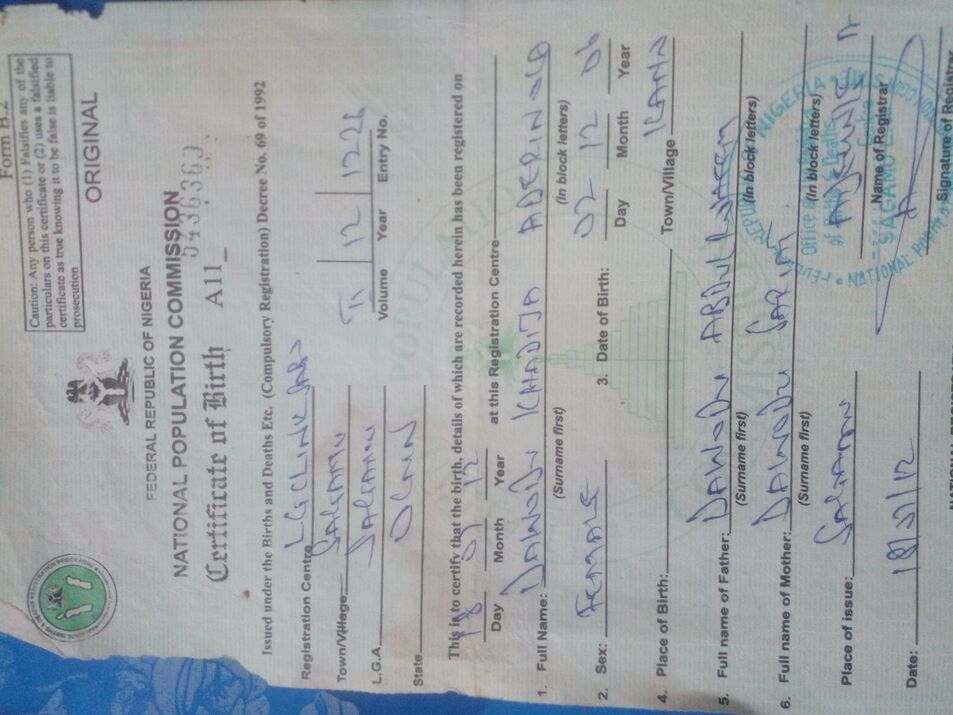 Form B.2
Caution: Any person who (1) Falsifies any of the
particulars on this certificate or (2) uses a falsified
certificate as true knowing it to be false is liable to
prosecution
ORIGINAL
FEDERAL REPUBLIC OF NIGERIA
NATIONAL POPULATION COMMISSION
Certificate of Birth A11
Issued under the Births and Deaths Etc. (Compulsory Registration) Decree No. 69 of 1992
Registration Centre
Town/Village SAGAMU
L.G.A. SAGAMU
State OGUN
12 122
Volume Year Entry No.
This is to certify that the birth, details of which are recorded herein has been registered on
18 07 12 at this Registration Centre
Day Month Year
1. Full Name: DAWODU KHADIJA ADERINOLA
(Surname first) (In block letters)
2. Sex: FEMALE 3. Date of Birth: 02 12 06
Day Month Year
4. Place of Birth: Town/Village
5. Full name of Father: DAWODU ABDUL
(Surname first) (In block letters)
6. Full name of Mother: DAWODU SARIAT
(Surname first) (In block letters)
Place of issue: SAGAMU
Name of Registrar
Date: 18/ /12
Signature of Registrar